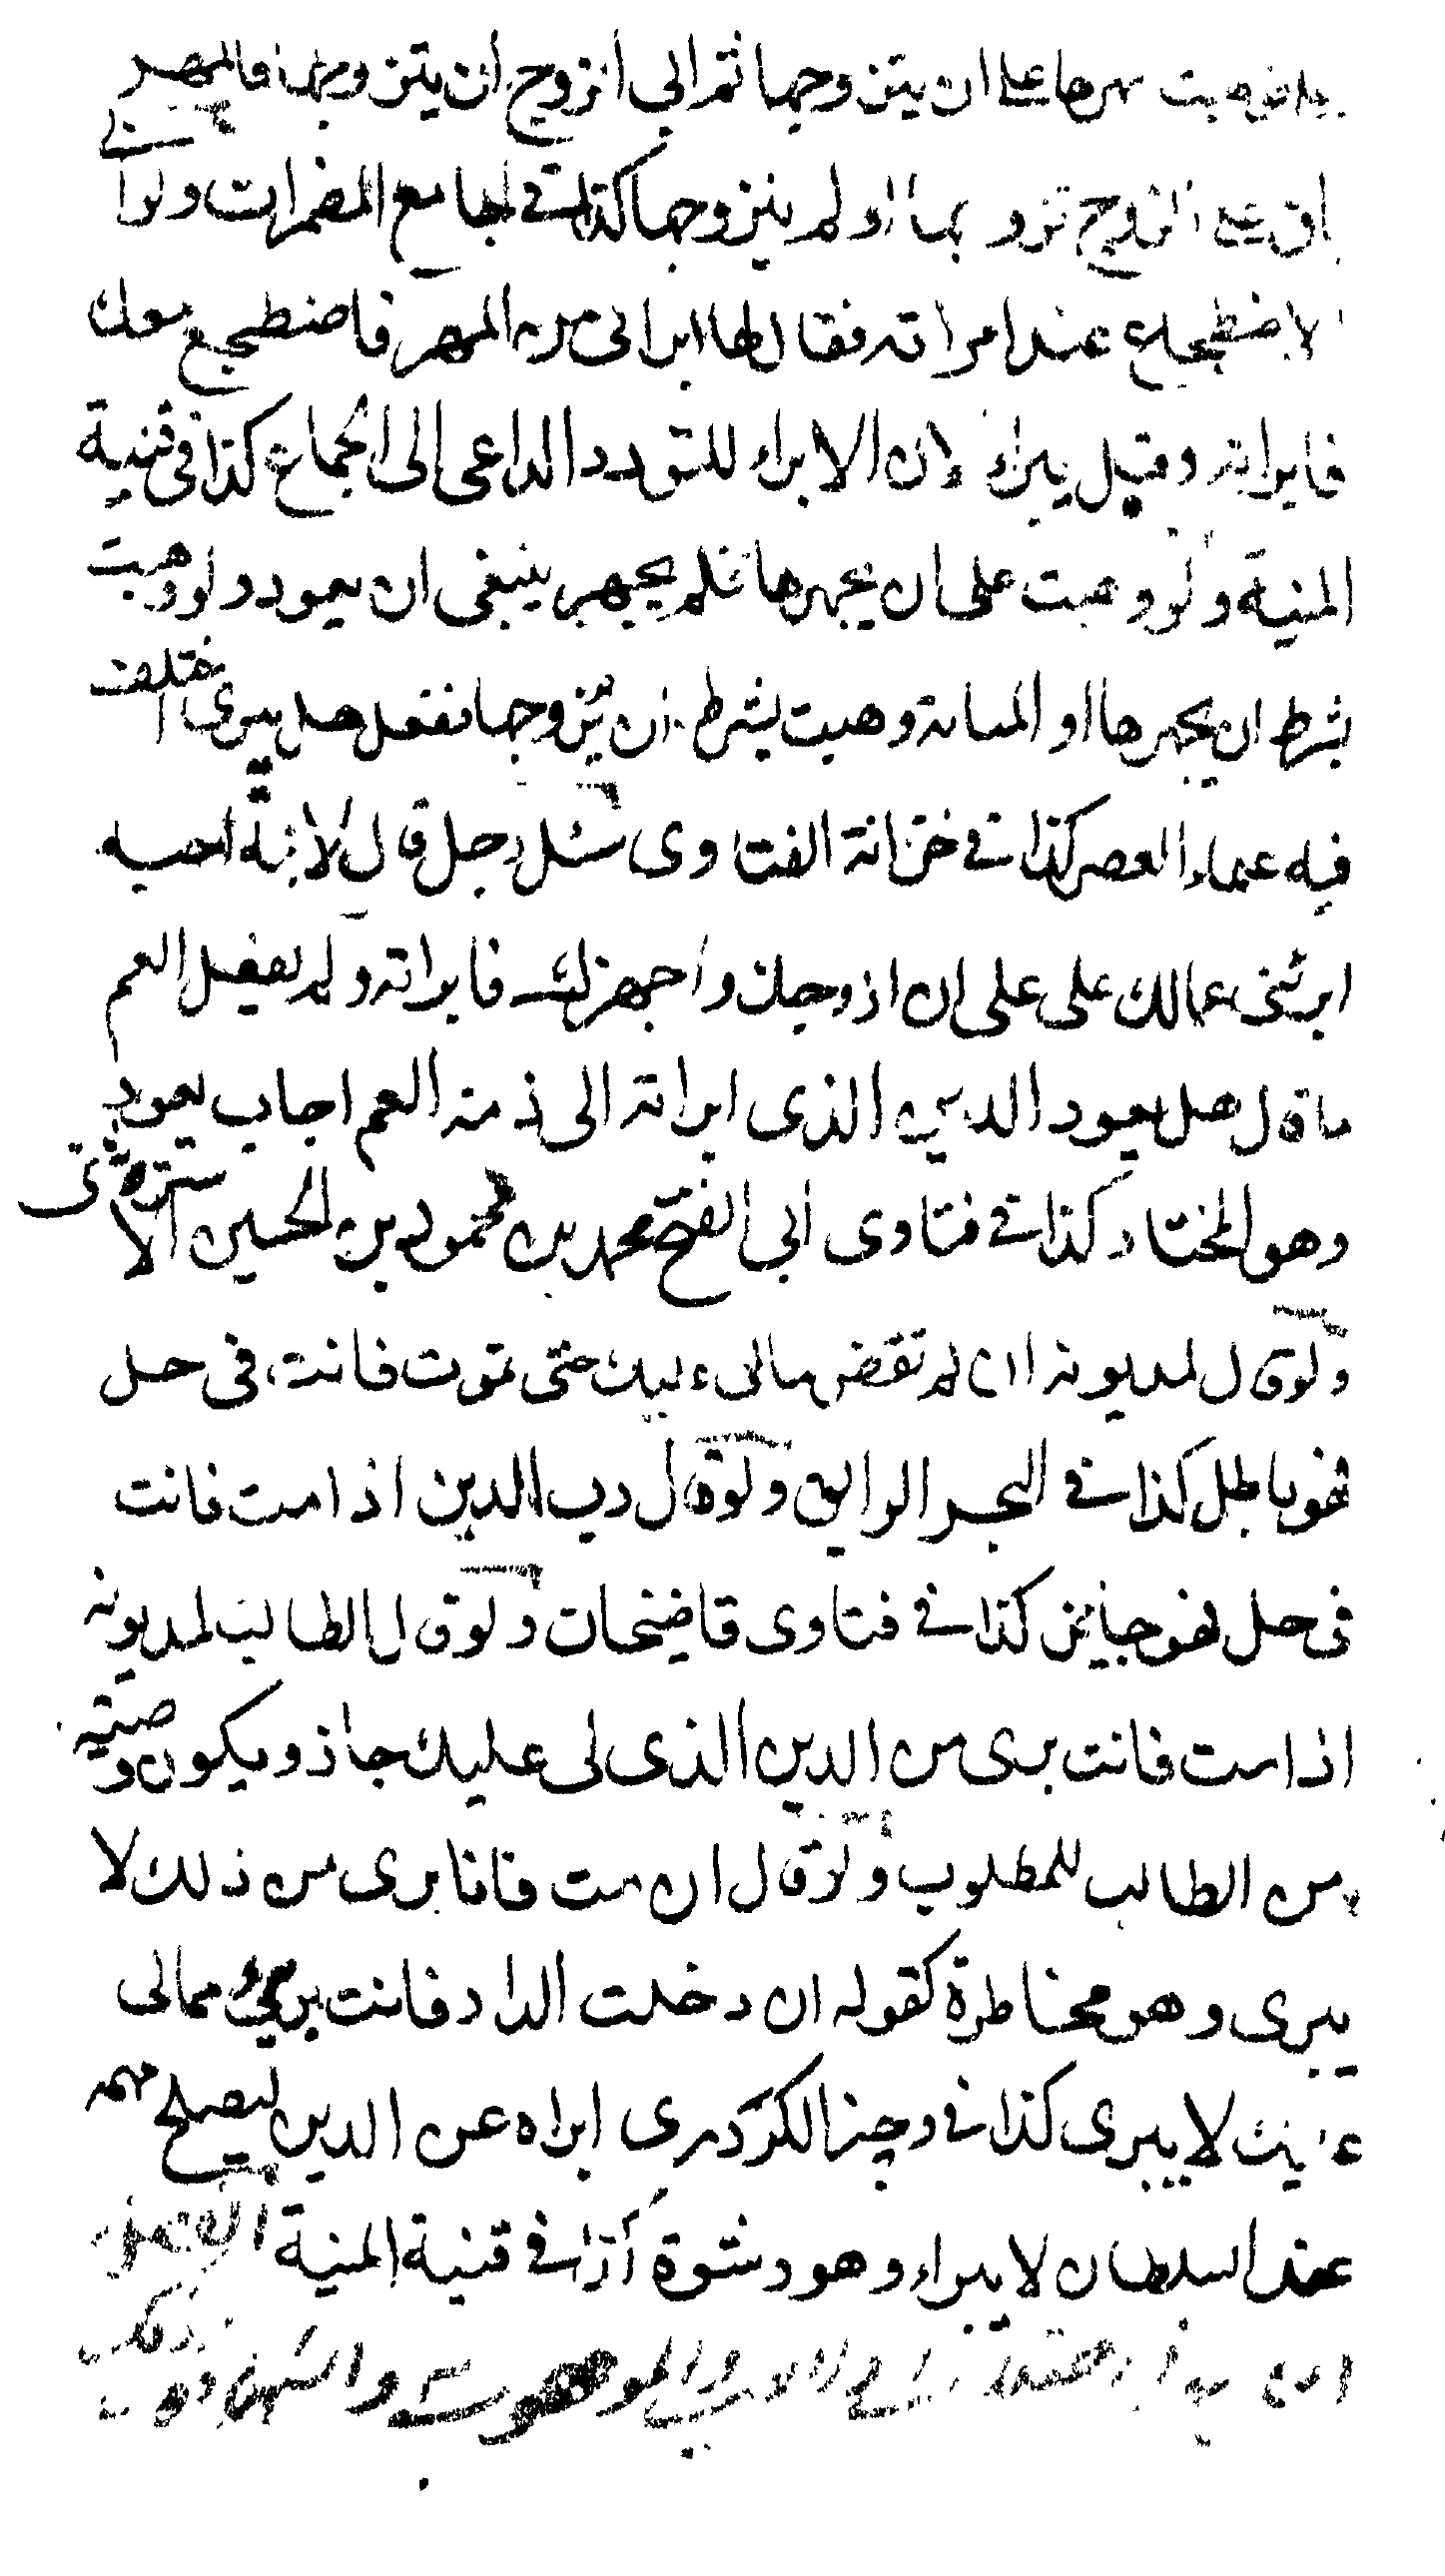 فوهبت مهرها على ان يتزوجها ثم ابى الزوج ان يتزوجها فالمهر
باق على الزوج تزوجها او لم يتزوجها كذا في جامع المضمرات ولو ابى
الاضطجاع عند امراته فقال لها ابرائى من المهر فاضطجع معك
فابراته وقيل يبراء لان الابراء للتودد الداعى الى الجماع كذا فى قنية
المنية ولو وهبت على ان يجهزها فلم يجهز ينبغى ان يعود ولو وهبت
بشرط ان يجهزها او المبانة وهبت بشرط ان يتزوجها ففعل هل يبرى اختلف
فيه علماء العصر كذا في خزانة الفتاوى سئل رجل قال لابنة اخيه
ابرئنى عمالك على على ان ازوجك واجهزك فابراته ولم يفعل العم
ما قال هل يعود الدين الذى ابراته الى ذمة العم اجاب يعود
وهو المختار كذا في فتاوى ابى الفتح محمد بن محمود بن الحسين الاستروشنى
ولو قال لمديونه ان لم تقض مالى عليك حتى تموت فانت فى حل
فهو باطل كذا في البحر الرايق ولو قال رب الدين اذا مت فانت
فى حل فهو جايز كذا في فتاوى قاضيخان ولو قال الطالب لمديونه
اذا مت فانت برى من الدين الذى لى عليك جاز ويكون وصية
من الطالب للمطلوب ولو قال ان مت فانا برى من ذلك لا
يبرى وهو مخاطرة كقوله ان دخلت الدار فانت برئ ممالى
عليك لا يبرى كذا في وجيز الكردرى ابراه عن الدين ليصلح مهمه
عند السلطان لا يبراء وهو رشوة كذا في قنية المنية